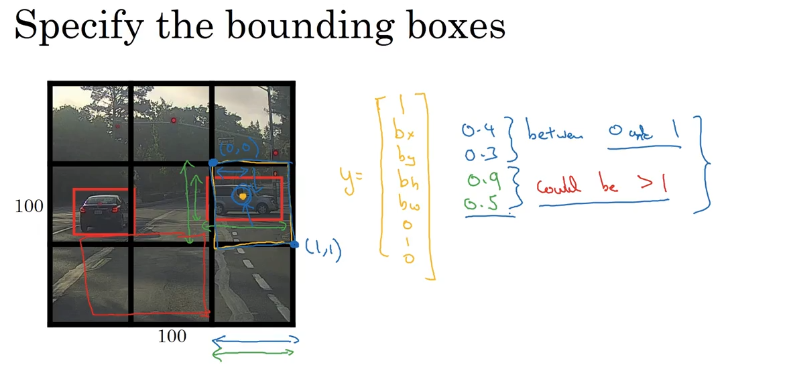 Specify the bounding boxes
(0,0)
100
(1,1)
100
y=
1
bx
by
bh
bw
0
1
0
0.4
0.3
between 0 and 1
0.9
0.5
could be > 1